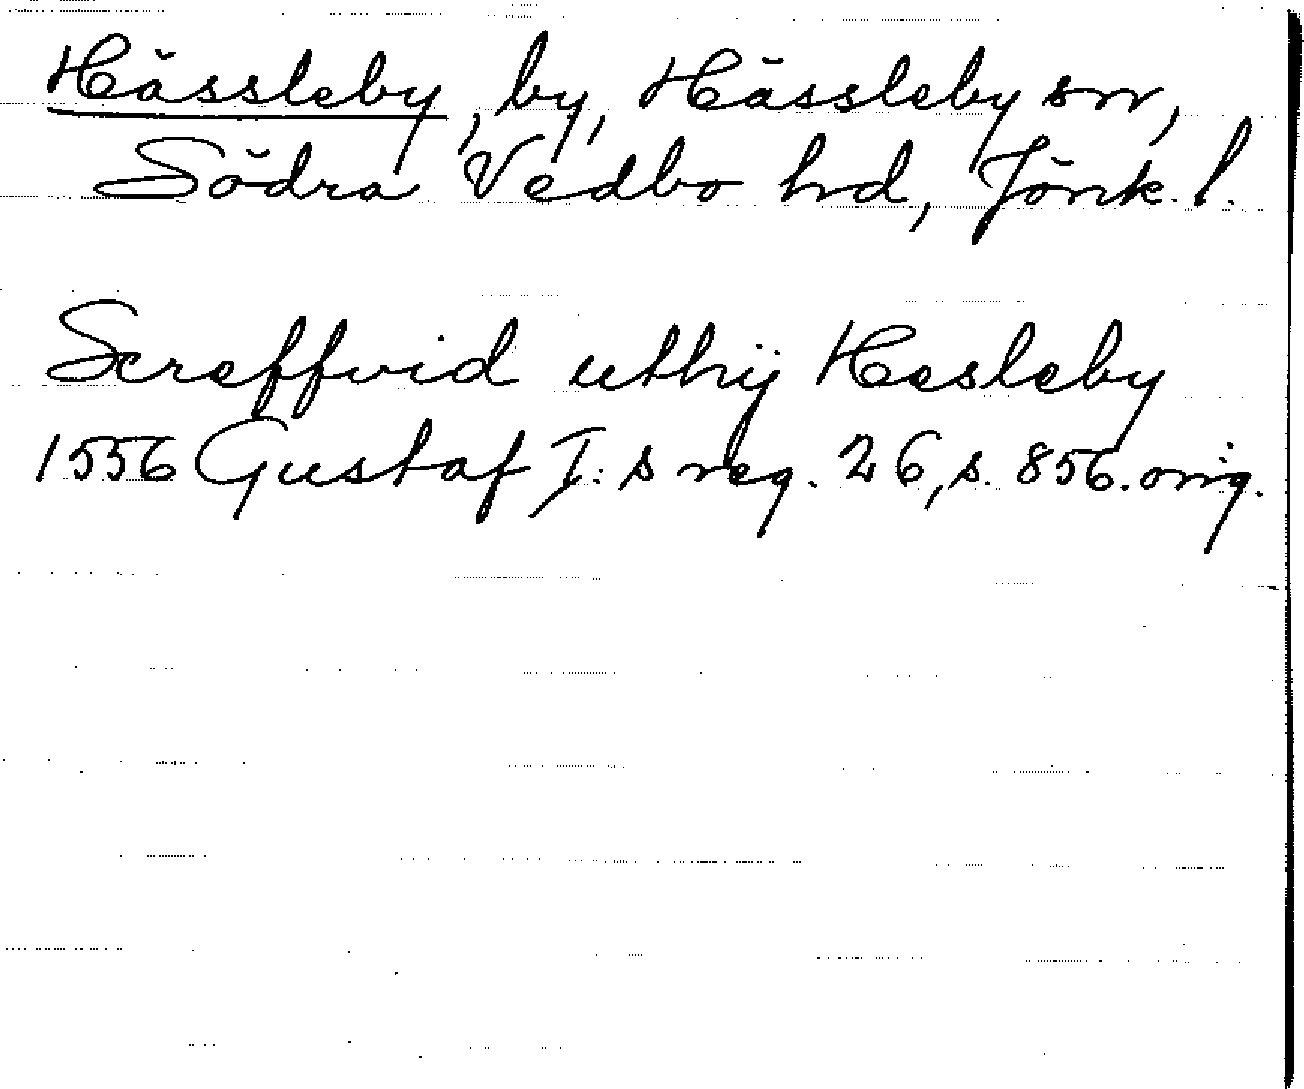 Hässleby, by, Hässleby sn,
Södra Vedbo hd, Jönk. l.
Screffvid uthij Hesleby
1556 Gustaf I:s reg. 26, s. 856. orig.